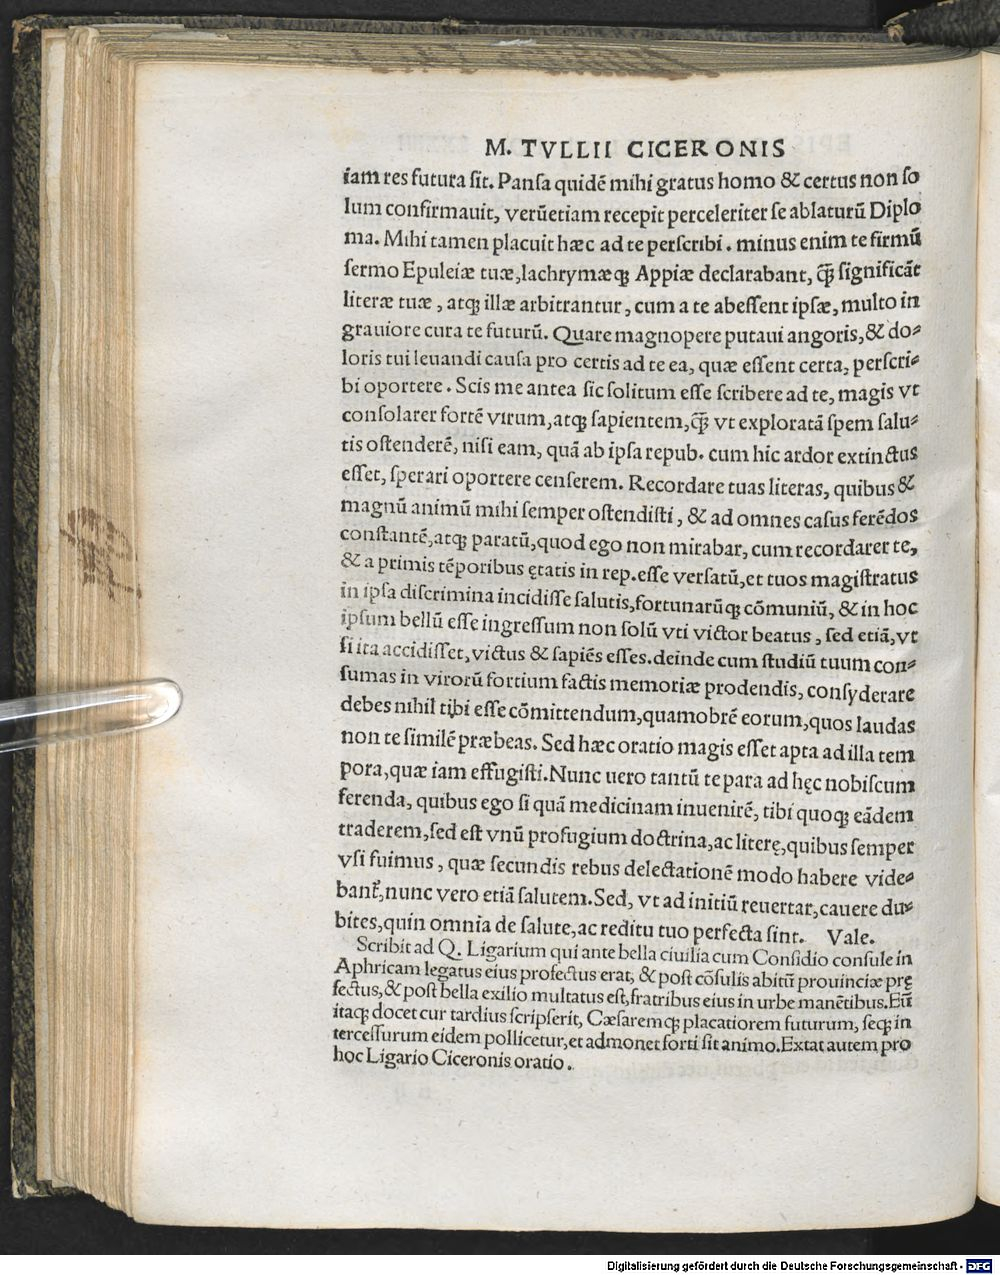 M. TVLLII CICERONIS
iam res futura ſit. Panſa quidē mihi gratus homo & certus non ſo
lum confirmauit, verūetiam recepit perceleriter ſe ablaturū Diplo
ma. Mihi tamen placuit hæc ad te perſcribi. minus enim te firmū
ſermo Epuleiæ tuæ, lachrymæq; Appiæ declarabant, q̄ꝫ ſignificāt
literæ tuæ, atq; illæ arbitrantur, cum a te abeſſent ipſæ, multo in
grauiore cura te futurū. Quare magnopere putaui angoris, & do-
loris tui leuandi cauſa pro certis ad te ea, quæ eſſent certa, perſcri-
bi oportere. Scis me antea ſic ſolitum eſſe ſcribere ad te, magis vt
conſolarer fortē virum, atq; ſapientem, q̄ꝫ vt exploratā ſpem ſalu-
tis oſtenderē, niſi eam, quā ab ipſa repub. cum hic ardor extinctus
eſſet, ſperari oportere cenſerem. Recordare tuas literas, quibus &
magnū animū mihi ſemper oſtendiſti, & ad omnes caſus ferēdos
conſtantē, atq; paratū, quod ego non mirabar, cum recordarer te,
& a primis tēporibus ętatis in rep. eſſe verſatū, et tuos magiſtratus
in ipſa diſcrimina incidiſſe ſalutis, fortunarūq; cōmuniū, & in hoc
ipſum bellū eſſe ingreſſum non ſolū vti victor beatus, ſed etiā, vt
ſi ita accidiſſet, victus & ſapiēs eſſes. deinde cum ſtudiū tuum con-
ſumas in virorū fortium factis memoriæ prodendis, conſyderare
debes nihil tibi eſſe cōmittendum, quamobrē eorum, quos laudas
non te ſimilē præbeas. Sed hæc oratio magis eſſet apta ad illa tem
pora, quæ iam effugiſti. Nunc uero tantū te para ad hęc nobiſcum
ferenda, quibus ego ſi quā medicinam inuenirē, tibi quoq; eādem
traderem, ſed eſt vnū profugium doctrina, ac literę, quibus ſemper
vſi fuimus, quæ ſecundis rebus delectationē modo habere vide-
bant᷑, nunc vero etiā ſalutem. Sed, vt ad initiū reuertar, cauere du-
bites, quin omnia de ſalute, ac reditu tuo perfecta ſint. Vale.
Scribit ad Q. Ligarium qui ante bella ciuilia cum Conſidio conſule in
Aphricam legatus eius profectus erat, & poſt cōſulis abitū prouinciæ prę
fectus, & poſt bella exilio multatus eſt, fratribus eius in urbe manētibus. Eū
itaq; docet cur tardius ſcripſerit, Cæſaremq; placatiorem futurum, ſeq; in
terceſſurum eidem pollicetur, et admonet forti ſit animo. Extat autem pro
hoc Ligario Ciceronis oratio.
Digitalisierung gefördert durch die Deutsche Forschungsgemeinschaft - DFG